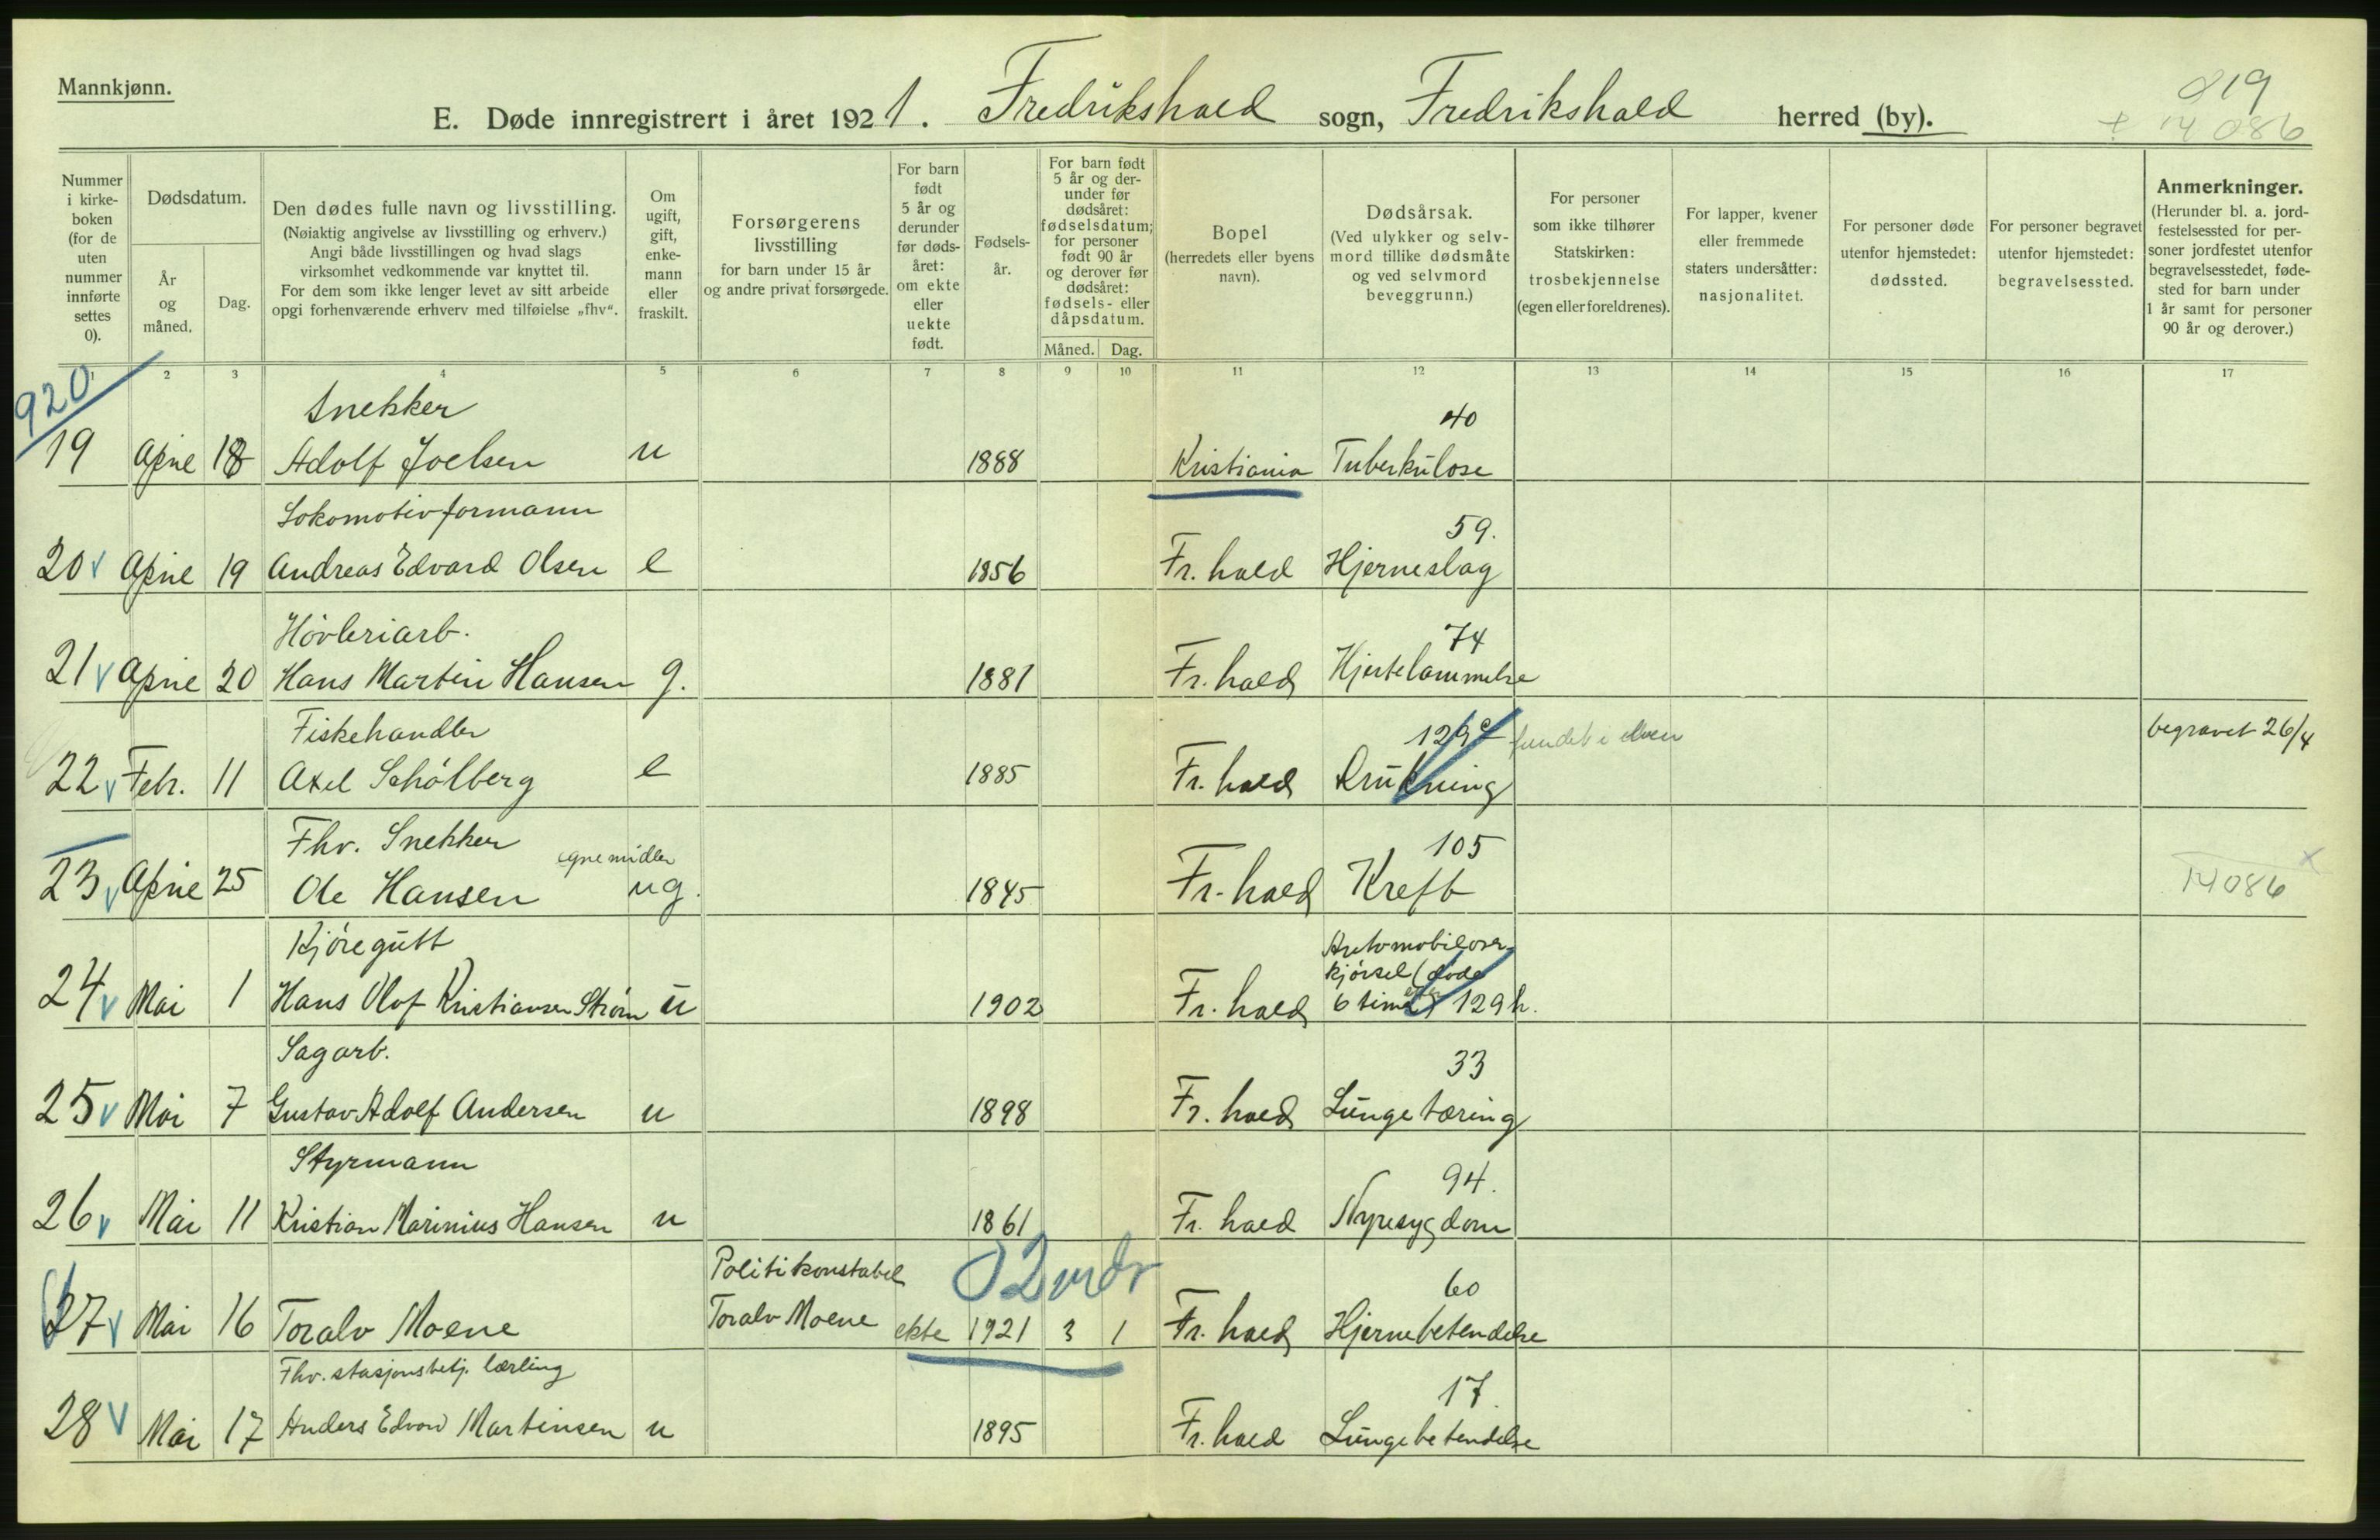 Mannkjønn.
E. Døde innregistrert i året 1921. Fredrikshald sogn, Fredrikshald herred (by).
819
14086
Nummer i kirke-boken (for de uten nummer innførte settes 0).
Dødsdatum.
År og måned.
Dag.
Den dødes fulle navn og livsstilling.
(Nøiaktig angivelse av livsstilling og erhverv.)
Angi både livsstillingen og hvad slags
virksomhet vedkommende var knyttet til.
For dem som ikke lenger levet av sitt arbeide
opgi forhenværende erhverv med tilføielse „fhv“.
Om ugift, gift, enke-mann eller fraskilt.
Forsørgerens livsstilling
for barn under 15 år
og andre privat forsørgede.
For barn født 5 år og derunder før døds-året: om ekte eller uekte født.
Fødsels-år.
For barn født 5 år og der-under før dødsåret: fødselsdatum; for personer født 90 år og derover før dødsåret: fødsels- eller dåpsdatum.
Måned. Dag.
Bopel
(herredets eller byens navn).
Dødsårsak.
(Ved ulykker og selv-mord tillike dødsmåte og ved selvmord beveggrunn.)
For personer som ikke tilhører Statskirken: trosbekjennelse (egen eller foreldrenes).
For lapper, kvener eller fremmede staters undersåtter: nasjonalitet.
For personer døde utenfor hjemstedet: dødssted.
For personer begravet utenfor hjemstedet: begravelsessted.
Anmerkninger.
(Herunder bl. a. jord-festelsessted for per-soner jordfestet utenfor begravelsesstedet, føde-sted for barn under 1 år samt for personer 90 år og derover.)
2 3 4 5 6 7 8 9 10 11 12 13 14 15 16 17
920
Snekker 40
19 April 18 Adolf Joelsen u 1888 Kristiania Tuberkulose
Lokomotivformann 59.
20 April 19 Andreas Edvard Olsen e 1856 Fr.hald Hjerneslag
Høvleriarb. 74
21 April 20 Hans Martin Hansen g. 1881 Fr.hald Hjertelammelse
Fiskehandler 129c fundet i elven begravet 26/4
22 Febr. 11 Axel Schólberg e 1885 Fr.hald Drukning
Fhv. Snekker egne midler 105
23 April 25 Ole Hansen ug. 1845 Fr.hald Kreft 14086
Kjøregutt Automobilover
kjørsel (døde
24 Mai 1 Hans Olof Kristiansen Strøm u 1902 Fr.hald 6 timer efter) 129h.
Sagarb. 33
25 Mai 7 Gustav Adolf Andersen u 1898 Fr.hald Lungetæring
Styrmann 94.
26 Mai 11 Kristian Marinius Hansen u 1861 Fr.hald Nyresygdom
Politikonstabel 02 mdr 60
27 Mai 16 Toralv Moene Toralv Moene ekte 1921 3 1 Fr.hald Hjernebetendelse
Fhv. stasjonsbetj. lærling 17.
28 Mai 17 Anders Edvard Martinsen u 1895 Fr.hald Lungebetendelse